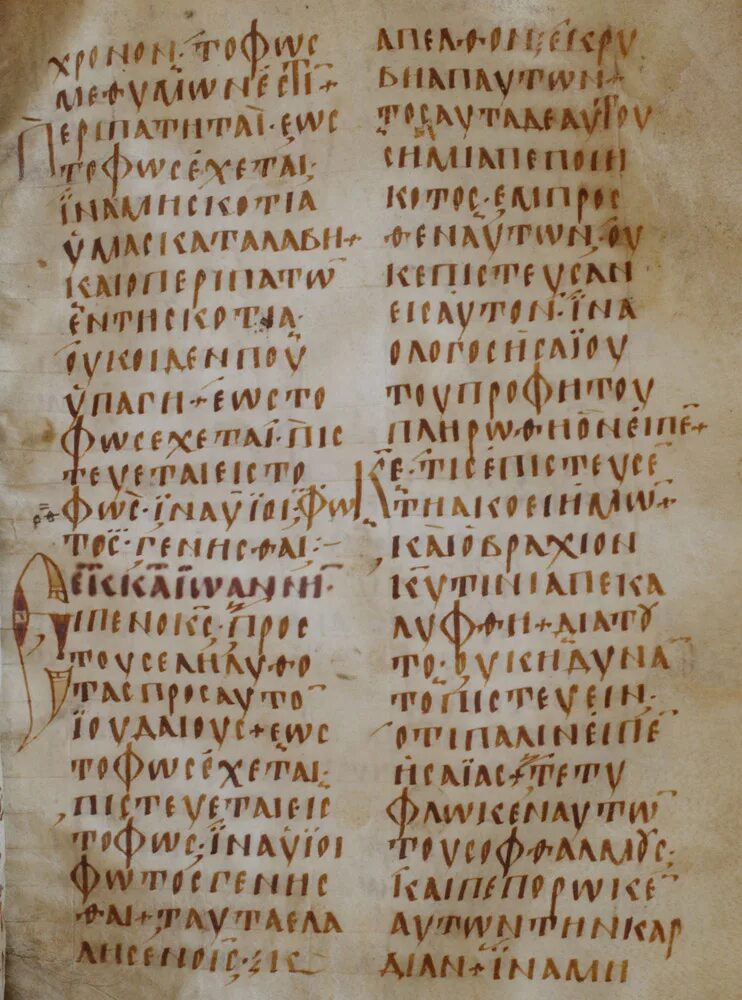 ΧΡΟΝΟΝ· ΤΟ ΦΩC
ΜΕΘ ΥΜΩΝ ΕCΤΙ̅+
ΠΕΡΙΠΑΤΗΤΑΙ· ΕΩC
ΤΟ ΦΩC ΕΧΕΤΑΙ·
ΪΝΑ ΜΗ CΚΟΤΙΑ
ΥΜΑC ΚΑΤΑΛΑΒΗ+
ΚΑΙ Ο ΠΕΡΙΠΑΤΩ̅
ΕΝ ΤΗ CΚΟΤΙΑ·
ΟΥΚ ΟΙΔΕΝ ΠΟΥ
ΥΠΑΓΗ+ ΕΩC ΤΟ
ΦΩC ΕΧΕΤΑΙ· ΠΙC
ΤΕΥΕΤΑΙ ΕΙC ΤΟ
ΦΩC· ΪΝΑ ΥΪΟΙ ΦΩ
ΤΟC ΓΕΝΗCΘΑΙ:–
ΕΚ Κ ΑΪΩΑΝΝΗ·
ΕΙΠΕΝ Ο ΚC· ΠΡΟC
ΤΟΥC ΕΛΗΛΥΘΟ
ΤΑC ΠΡΟC ΑΥΤΟ̅
ΪΟΥΔΑΙΟΥC+ ΕΩC
ΤΟ ΦΩC ΕΧΕΤΑΙ·
ΠΙCΤΕΥΕΤΑΙ ΕΙC
ΤΟ ΦΩC· ΪΝΑ ΥΪΟΙ
ΦΩΤΟC ΓΕΝΗC
ΘΑΙ+ ΤΑΥΤΑ ΕΛΑ
ΛΗCΕΝ Ο ΙC· Κ
ΑΠΕΛΘΟΝ· ΕΚΡΥ
ΒΗ ΑΠ ΑΥΤΩΝ+
ΤΟCΑΥΤΑ ΔΕ ΑΥΤΟΥ
CΗΜΙΑ ΠΕΠΟΙΗ
ΚΟΤΟC· ΕΜΠΡΟC
ΘΕΝ ΑΥΤΩΝ· ΟΥ
Κ ΕΠΙCΤΕΥCΑΝ
ΕΙC ΑΥΤΟΝ· ΪΝΑ
Ο ΛΟΓΟC ΗCΑΪΟΥ
ΤΟΥ ΠΡΟΦΗΤΟΥ
ΠΛΗΡΩΘΗ ΟΝ ΕΙΠΕ̅+
ΚΕ· ΤΙC ΕΠΙCΤΕΥCΕ
ΤΗ ΑΚΟΕΙ ΗΜΩ̅+
ΚΑΙ Ο ΒΡΑΧΙΟΝ
ΚΥ ΤΙΝΙ ΑΠΕΚΑ
ΛΥΦΘΗ+ ΔΙΑ ΤΟΥ
ΤΟ· ΟΥΚ ΗΔΥΝΑ̅
ΤΟ ΠΙCΤΕΥΕΙΝ·
ΟΤΙ ΠΑΛΙΝ ΕΙΠΕ̅
ΗCΑΪΑC+ ΤΕΤΥ
ΦΛΩΚΕΝ ΑΥΤΩ̅
ΤΟΥC ΟΦΘΑΛΜΟΥC·
ΚΑΙ ΠΕΠΟΡΩΚΕ̅
ΑΥΤΩΝ ΤΗΝ ΚΑΡ
ΔΙΑΝ+ ΪΝΑ ΜΗ